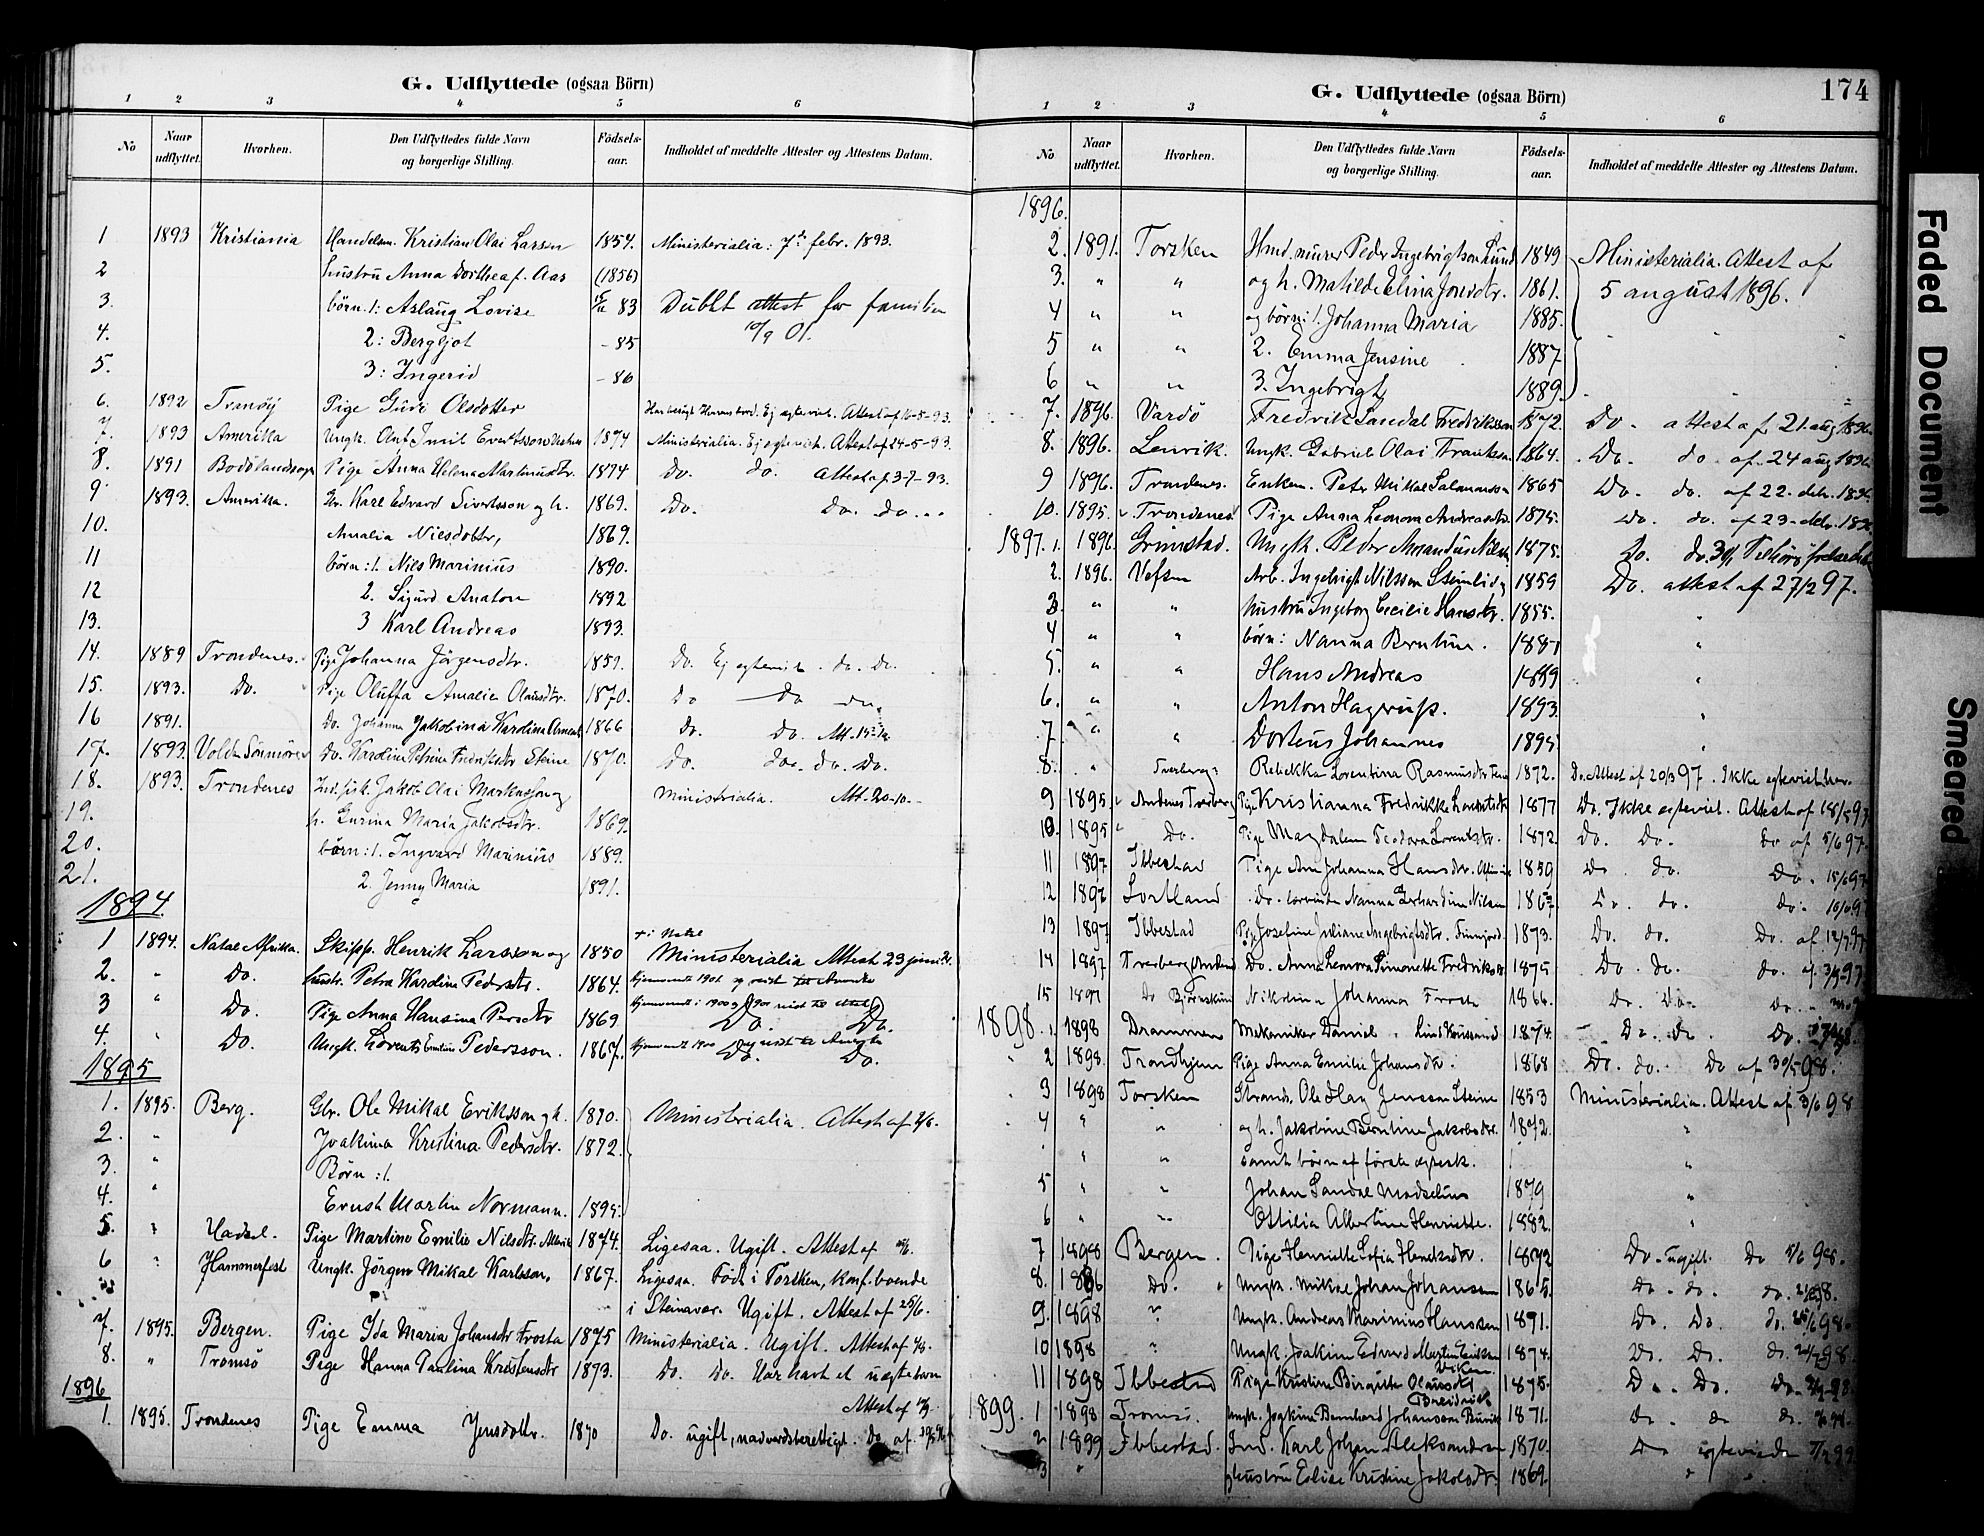 G. Udflyttede (ogsaa Börn)
1 2 3 4 5 6
No Naar udflyttet. Hvorhen. Den Udflyttedes fulde Navn og borgerlige Stilling. Födsels-aar. Indholdet af meddelte Attester og Attestens Datum.
1 1893 Kristiania Handelsm. Kristian Olai Larsen 1854. Ministerialia: 7de febr. 1893.
2 hustru Anna Dorthea f. Aas (1856)
3. börn: 1: Aslaug Lovise 83 Dublt attest for familien
4. 2: Bergljot - 85 10/9 01.
5. 3: Ingerid - 86
6. 1892 Tranöy Pige Guri Olsdotter Ej egteviet. Attest af 16-5-93.
7. 1893 Amerika Ungk. Oluf Emil Evertsson 1874 Ministerialia. Ej egteviet. Attest af 24-5-93.
8. 1891 Bodö landsogn Pige Anna Helena Martinusdtr. 1874 Do. do. Attest af 3-7-93.
9 1893. Amerika. Gbr. Karl Edvard Sivertsson og h. 1869. Do. Do. Do. . .
10. Amalia Nilsdottr, 1869.
11 börn: 1. Nils Marinius 1890.
12 2. Sigurd Anaton 1892
13. 3 Karl Andreas 1893.
14. 1889 Trondenes. Pige Johanna Jörgensdtr. 1851. Do. Ej egteviet. do. do.
15. 1893. Do. Pige Oluffa Amalie Olausdtr. 1870. Do Do do.
16 1891. Do. Johanna Jakobina Karolina 1866 Do. Do. Att. 15-
17. 1893. Volden Sönmöre Do. Karoline Petrine Fredriksdtr Steine 1870. Do. Do. Do. Do.
18. 1893. Trondenes Ind. fisk. Jakob Olai Markusson og Ministerialia. Att. 20-10-
19. h. Gurina Maria Jakobsdtr. 1869.
20. börn: 1. Ingvard Marinius 1889.
21. 2. Jenny Maria 1891.
1894.
1 1894. Natal Afrika. Skipp. Henrik Larsson og 1850 + i Natal Ministerialia Attest 23 juni
2. " Do. hustr. Petra Karoline Pedersdtr. 1864. hjemvendt 1901 og reist til Amerika
3 " Do. Pige Anna Hansina Persdtr 1869 Do. Do.
4. " Do. Ungk. Lorents Emtine Pedersson. 1867. Do. Do.
1895
1. 1895. Berg. Gbr. Ole Mikal Eriksson og h. 1870. Ministerialia. Attest af 2/6.
2. " Joakima Kristina Pedersdtr. 1872.
3. " Börn: 1.
4. " Ernst Martin Normann. 1895.
5. " Hadsel. Pige Martine Emilie Nilsdtr. 1874. Ligesaa. Ugift. Attest af
6 " Hammerfest Ungk. Jörgen Mikal Karlson. 1867. Ligesaa. Födt i Torsken, konf. boende
i Steinavær. Ugift. Attest af 25/6.
7. 1895. Bergen. Pige Ida Maria Johansdtr Frosta 1875 Ministerialia. Ugift. Attest af
8. " Tromsö Pige Hanna Paulina Kristensdtr 1873. Do. Do. Har havt et uegte barn
1896 Attest af
1. 1895. Trondenes Pige Emma Jensdottr. 1870 Do. ugift, nadverdsberettiget. Do. af
G. Udflyttede (ogsaa Börn) 174
1 2 3 4 5 6
No Naar udflyttet. Hvorhen. Den Udflyttedes fulde Navn og borgerlige Stilling. Födsels-aar. Indholdet af meddelte Attester og Attestens Datum.
1896.
2. 1891. Torsken Hmd. murer Peder Ingebrigtson Lund 1849 Ministerialia. Attest af
3. " " og h. Matilde Elina Jonsdtr. 1861. 5 august 1896.
4 " " og börn: 1. Johanna Maria 1885.
5 " " 2. Emma Jensine 1887.
6 " " 3. Ingebrigt 1889.
7. 1896. Vardö Fredrik Sandal Fredriksson 1872. Do. attest af 21. aug 1896.
8. 1896. Lenvik. Ungk. Gabriel Olai Frantson 1864. Do. do. af. 24 aug 1896
9 1896. Trondenes. Enkem. Peter Mikal Salamonson 1865 Do. do. af 22. 1896
10. 1895. Trondenes. Pige Anna Leonora Andreasdtr. 1875. Do. do. af 23. 1896
1897. 1. 1896 Grimstad. Ungk. Peder Amandus Nilsen 1875. Do. do. 30/1
2. 1896. Vefsen Arb. Ingebrigt Nilsson Stenlid og 1859 Do. attest af 27/2 97.
3. " " hustru Ingeborg Cecilie Hansdtr. 1855.
4 " " börn: Nanna Berntine. 1887
5. " " Hans Andreas 1889
6. " " Anton Hagerup. 1893.
7. " " Dorteus Johannes 1895.
8. Tverberg Rebekka Lorentina Rasmusdtr 1872. Do. Attest af 20/3 97. Ikke egteviet her.
9 1895. Andenes Tverberg Pige Kristianna Fredrikke 1877 Do. Ikke egteviet. Attest af 18/5 97
10. 1895 Do. Pige Magdalena Teodora Lorentsdtr. 1872. Do. Do. Do af 5/6 97.
11 1897 Ibbestad Pige Ane Johanna Hansdtr. 1859 Do. do. Do. 15/6 97
12 1897 Sortland Do. Nanna Gerhardine Nilsen 1867 Do. do. Do. 16/6 97
13 1897 Ibbestad Pige Josefine Juliane Ingebrigtsdtr. Finnjord 1873. Do. do. Do. af 12/7 97
14 1897 Tverberg Andenes Do. Anna Leonora Simonette Fredriksdtr 1875. Do. do. do. af 3/9 97
15 1897 Do Björnskinn Nikoline Johanna Frosta 1866. Do. Do. Do.
1898. 1. 1898 Drammen Mekaniker Daniel 1874. Do. do. Do.
2 1898. Trondhjem Pige Anna Emilie Johansdtr. 1868 Do. do. Do af 30/5 98.
3 1898 Torsken Strands. Ole Hay Jensson Steine 1853 Ministerialia. Attest af 3/6 98
4 " " og h. Jakobine Berntine Jakobsdtr. 1872. "
" " samt börn af förste egtesk. "
5 " " Johan Sandal Madselius 1879 "
6 " " Ottilia Albertine Henriette. 1882. "
7 1898 Bergen. Pige Henriette Sofia Henriksdtr. 1872 Do. ugift. Do 5/6 98.
8. 1896 Do. Ungk. Mikal Johan Johansen 1865. Do. do. do.
9. 1898 " Ungk. Andreas Marinius Hanssen 1871. Do. Do. do.
10 1898 " Ungk. Joakim Edvard Martin Eriksen 1874. Do. Do. do.
11 1898 Ibbestad Pige Kristine Birgitte Olausdtr 1875. Do. Do. Do.
1899. 1 1898 Tromsö. Ungk. Joakim Bernhard Johansson 1871. Do. do do.
2 1899 Ibbestad. Ind. Karl Johan Aleksandersen 1870. Do egteviede 7/2 99
3 " og hustru Edise Kristine Jakobsdtr. 1869. " "
Faded Document
Smeared